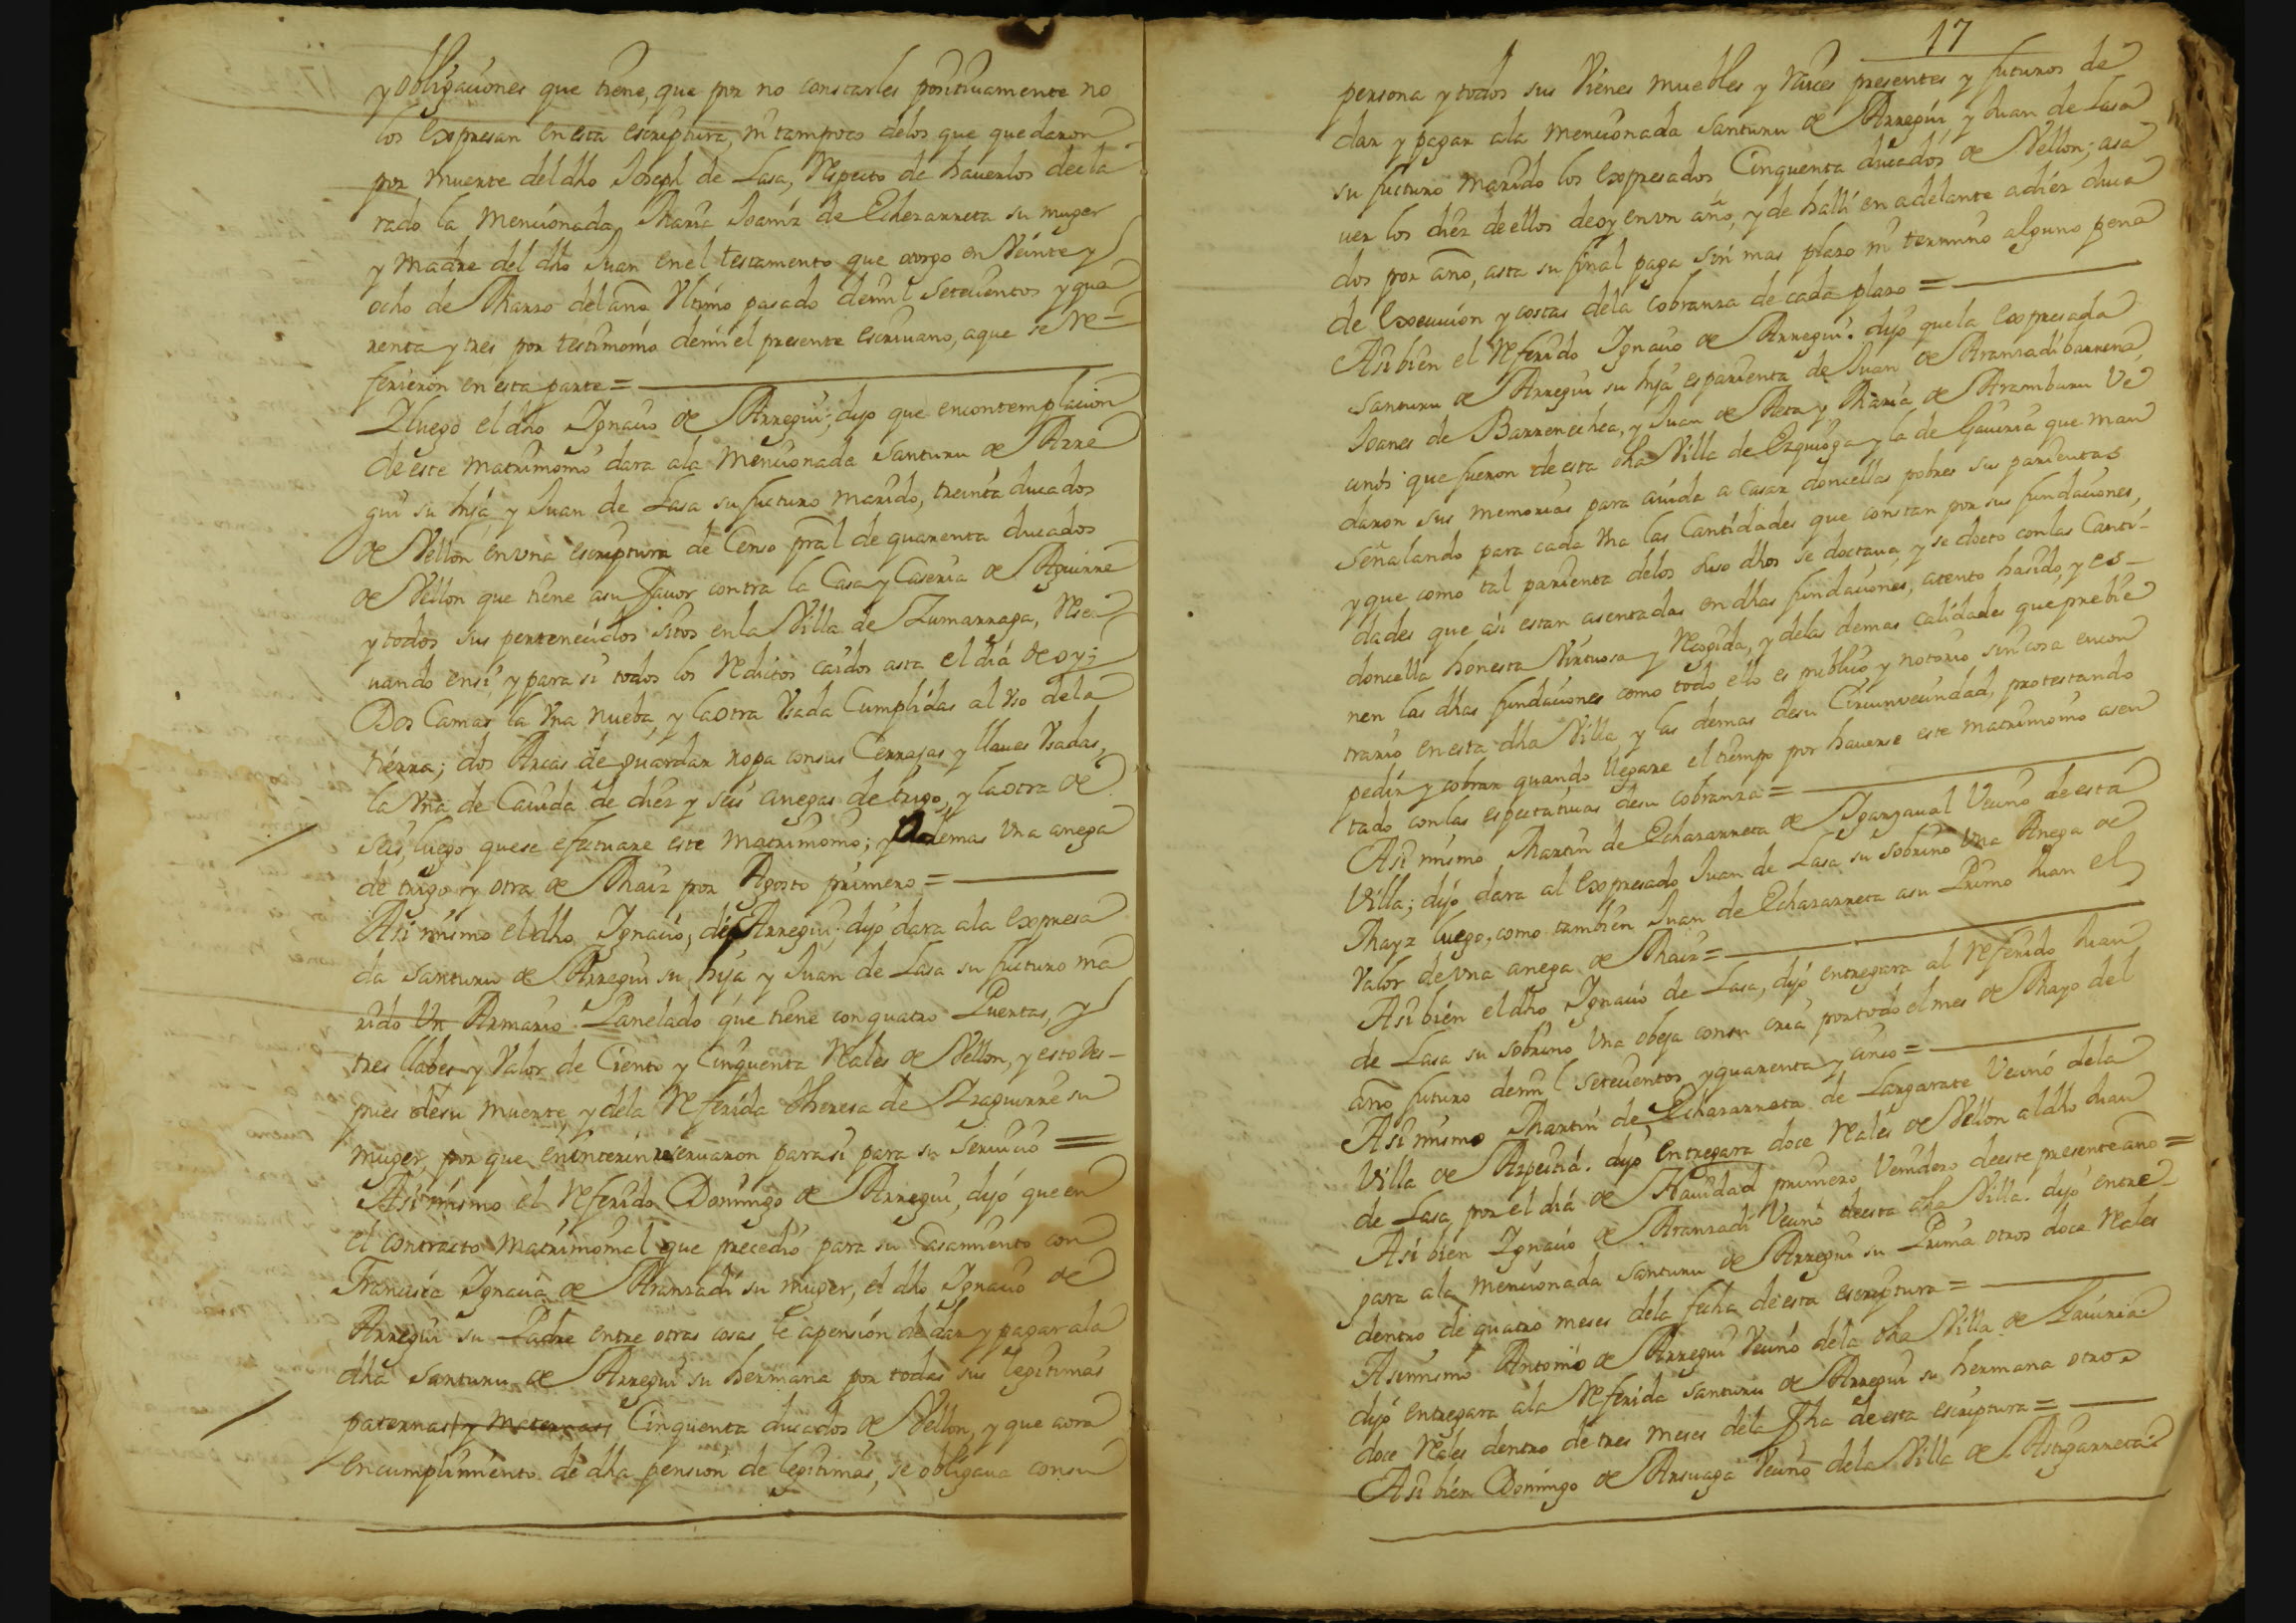 y obligaciones que tiene, que por no constarles positivamente no
los expresan en esta escriptura, ni tampoco delos que quedaron
por muerte del dho Joseph de Lasa, respecto de hauerlos decla
rado la mencionada Maria Joaniz de Echezarreta su muger
y Madre del dho Juan enel testamento que otorgo en Veinte y
ocho de Marzo del año Ultimo pasado demil setecientos y qua
renta y tres por testimonio demi el presente escriuano, aque se re=
firieron en esta parte =
Y luego el dho Ignacio de Arregui; dijo que encontemplacion
de este matrimonio dara ala mencionada Santuru de Arre
gui su hija y Juan de Lasa su futuro marido, treinta ducados
de Vellon envna escriptura de Censo pral de quarenta ducados
de Vellon que tiene asu fauor contra la Casa y Caseria de Aguirre
y todos sus pertenecidos sitos en la Villa de Zumarraga, reser
uando ensi, y para si todos los reditos caidos asta el dia de oy;
Dos Camas la Vna nueba, y la otra Vsada Cumplidas al Vso dela
tierra; dos Arcas de guardar ropa consus Cerrajas y llaues Vsadas,
la Vna de Cauida de diez y seis anegas de trigo, y la otra de
seis, luego quese efectuare este matrimonio; y ademas Vna anega
de trigo y otra de Maiz por Agosto primero =
Asi mismo el dho Ignacio, de Arregui; dijo dara ala expresa
da Santuru de Arregui su hija y Juan de Lasa su futuro ma
rido Un Armario Panelado que tiene con quatro Puertas, y
tres llabes y Valor de Ciento y Cinquenta reales de Vellon, y esto des-
pues desu muerte, y dela referida Theresa de Izaguirre su
muger, por que eninterin reseruaron parasi para su seruicio =
Asi mismo el referido Domingo de Arregui, dijo que en
el contracto Matrimonial que precedio para su Casamiento con
Francisca Ignacia de Aranzadi su muger, el dho Ignacio de
Arregui su Padre entre otras cosas le apension de dar y pagar ala
dha Santuru de Arregui su hermana por todas sus legitimas
paternas y maternas Cinquenta ducados de Vellon, y que aora
encumplimiento de dha pension de legitimas, se obligaua consu
17
persona y todos sus Vienes muebles y raices presentes y futuros de
dar y pagar ala mencionada Santuru de Arregui y Juan de Lasa
su futuro marido los expresados Cinquenta ducados de Vellon; asa
uer los diez deellos deoy envn año, y de halli en adelante adiez duca
dos por año, asta su final paga sin mas plazo ni termino alguno pena
de Execucion y costas dela cobranza de cada plazo =
Asi bien el referido Ignacio de Arregui. dijo quela expresada
Santuru de Arregui su hija esparienta de Juan de Aranzadibarrena,
Joanes de Barrenechea, y Juan de Reta y Maria de Aramburu Ve
cinos que fueron de esta dha Villa de Ezquioga y la de Gauiria que man
daron sus memorias para aiuda a casar doncellas pobres sus parientas
señalando para cada Vna las Cantidades que constan por sus fundaciones,
y que como tal parienta delos suso dhos se doctaua, y se docto conlas Canti-
dades que asi estan asentadas en dhas fundaciones, atento hasido, y es-
doncella honesta Virtuosa y recogida, y delas demas calidades que prebie
nen las dhas fundaciones como todo ello es publico y notorio sin cosa encon
trario en esta dha Villa y las demas desu Circunvecindad, protestando
pedir y cobrar quando llegare el tiempo por hauerse este matrimonio asen
tado conlas espectatiuas desu cobranza =
Asi mismo Martin de Echazarreta de Igarzaual Vecino de esta
Villa; dijo dara al expresado Juan de Lasa su sobrino Vna Anega de
Mayz luego, como tambien Juan de Echazarreta asu Primo Juan el
Valor de vna anega de Maiz =
Asi bien el dho Ignacio de Lasa, dijo entregara al referido Juan
de Lasa su sobrino Vna obeja consu cria por todo el mes de Mayo del
año futuro demil setecientos y quarenta y cinco =
Asi mismo Martin de Echazarreta de Langarate Vecino dela
Villa de Azpeitia. dijo entregara doce reales de Vellon al dho Juan
de Lasa por el dia de Nauidad primero Venidero deeste presente año =
Asi bien Ignacio de Aranzadi Vecino deesta dha Villa. dijo entre
gara ala mencionada Santuru de Arregui su Prima otros doce reales
dentro de quatro meses dela fecha de esta escriptura =
Asimismo Antonio de Arregui Vecino dela dha Villa de Gauiria
dijo entregara ala referida Santuru de Arregui su hermana otros
doce reales dentro de tres meses dela fha de esta escriptura =
Asi bien Domingo de Arsuaga Vecino dela Villa de Astigarreta